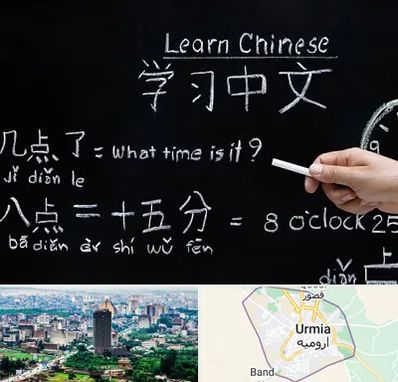 Learn Chinese
学习中文
几点了 = What time is it?
Jǐ diǎn le
八点二十五分 = 8 o'clock 25
bā diǎn èr shí wǔ fēn
diǎn
9
قصور
Urmia
ارومیه
Band